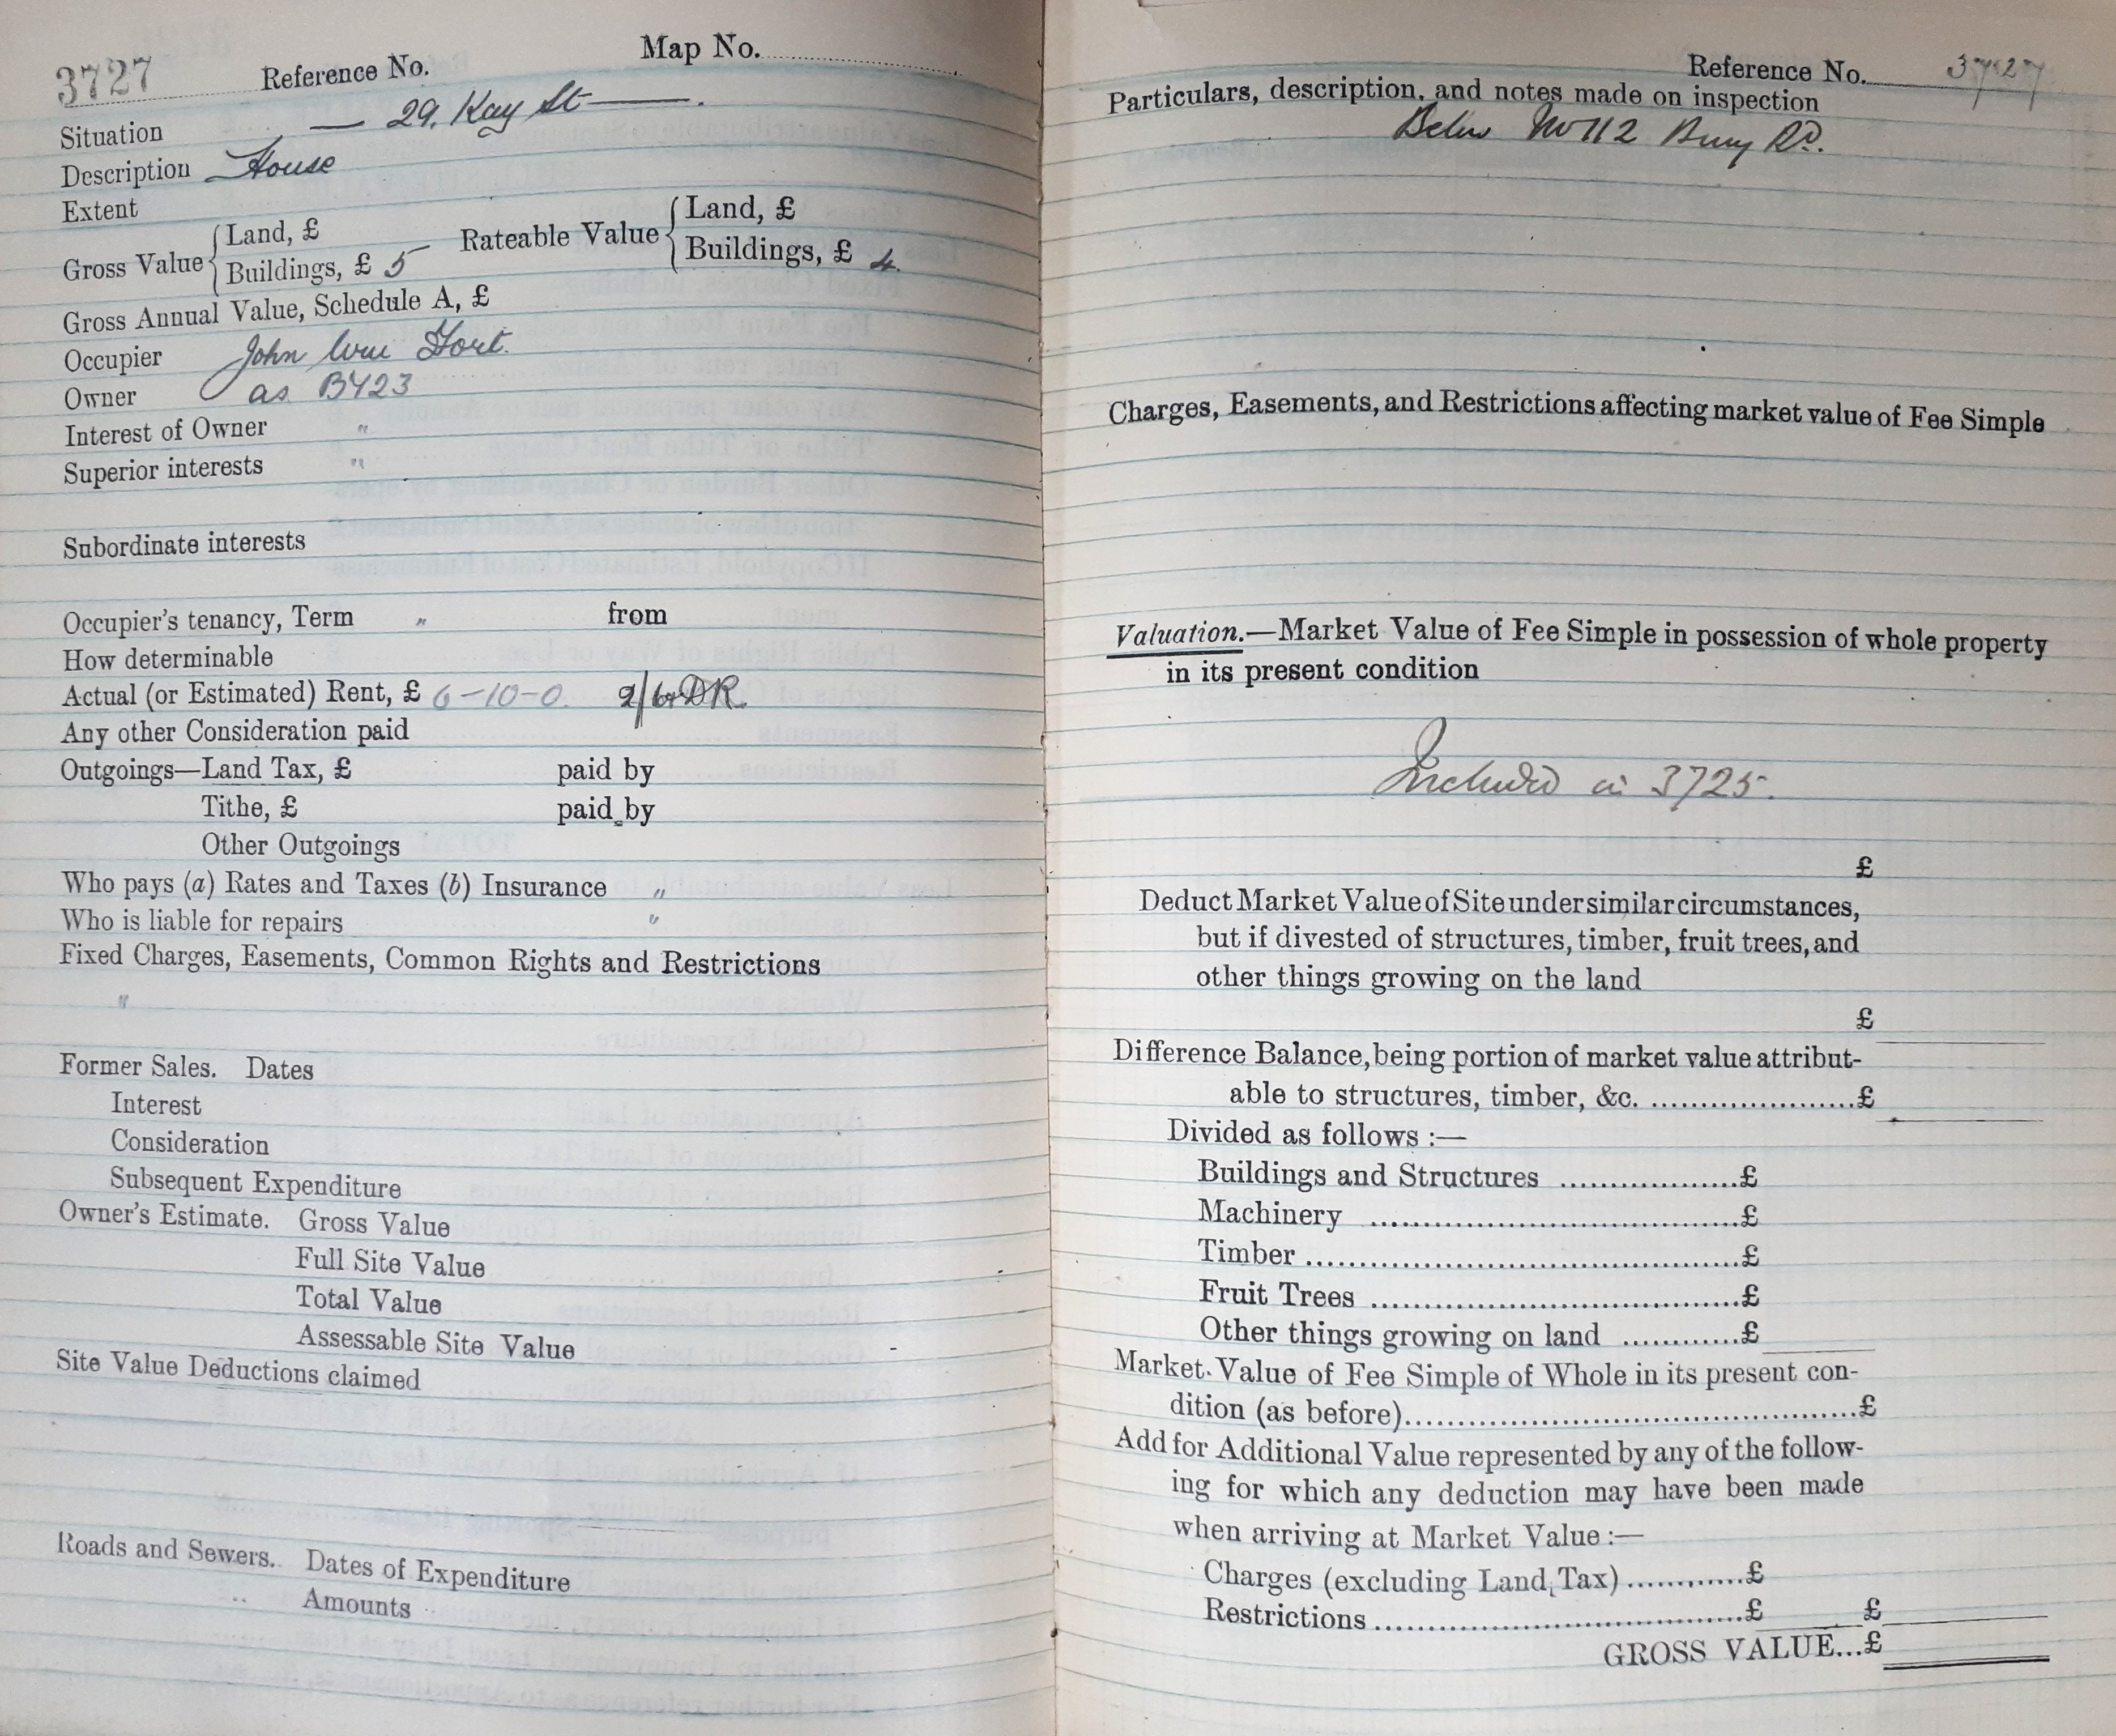 3727 Reference No. Map No.
Situation — 29, Kay St —.
Description House
Extent
Gross Value { Land, £
Buildings, £ 5 Rateable Value { Land, £
Buildings, £ 4
Gross Annual Value, Schedule A, £
Occupier John Wm Hort.
Owner as 3423
Interest of Owner "
Superior interests "
Subordinate interests
Occupier's tenancy, Term " from
How determinable
Actual (or Estimated) Rent, £ 6-10-0. 2/6
Any other Consideration paid
Outgoings—Land Tax, £ paid by
Tithe, £ paid by
Other Outgoings
Who pays (a) Rates and Taxes (b) Insurance "
Who is liable for repairs "
Fixed Charges, Easements, Common Rights and Restrictions
"
Former Sales. Dates
Interest
Consideration
Subsequent Expenditure
Owner's Estimate. Gross Value
Full Site Value
Total Value
Assessable Site Value
Site Value Deductions claimed
Roads and Sewers. Dates of Expenditure
Amounts
Reference No. 3727
Particulars, description, and notes made on inspection
Below No 112 Bury Rd.
Charges, Easements, and Restrictions affecting market value of Fee Simple
Valuation.—Market Value of Fee Simple in possession of whole property
in its present condition
Included in 3725.
£
Deduct Market Value of Site under similar circumstances,
but if divested of structures, timber, fruit trees, and
other things growing on the land
£
Difference Balance, being portion of market value attribut-
able to structures, timber, &c. ......................£
Divided as follows :—
Buildings and Structures ..................£
Machinery ......................................£
Timber ............................................£
Fruit Trees ......................................£
Other things growing on land ............£
Market Value of Fee Simple of Whole in its present con-
dition (as before)...............................................£
Add for Additional Value represented by any of the follow-
ing for which any deduction may have been made
when arriving at Market Value :—
Charges (excluding Land Tax)............£
Restrictions ......................................£ £
GROSS VALUE...£